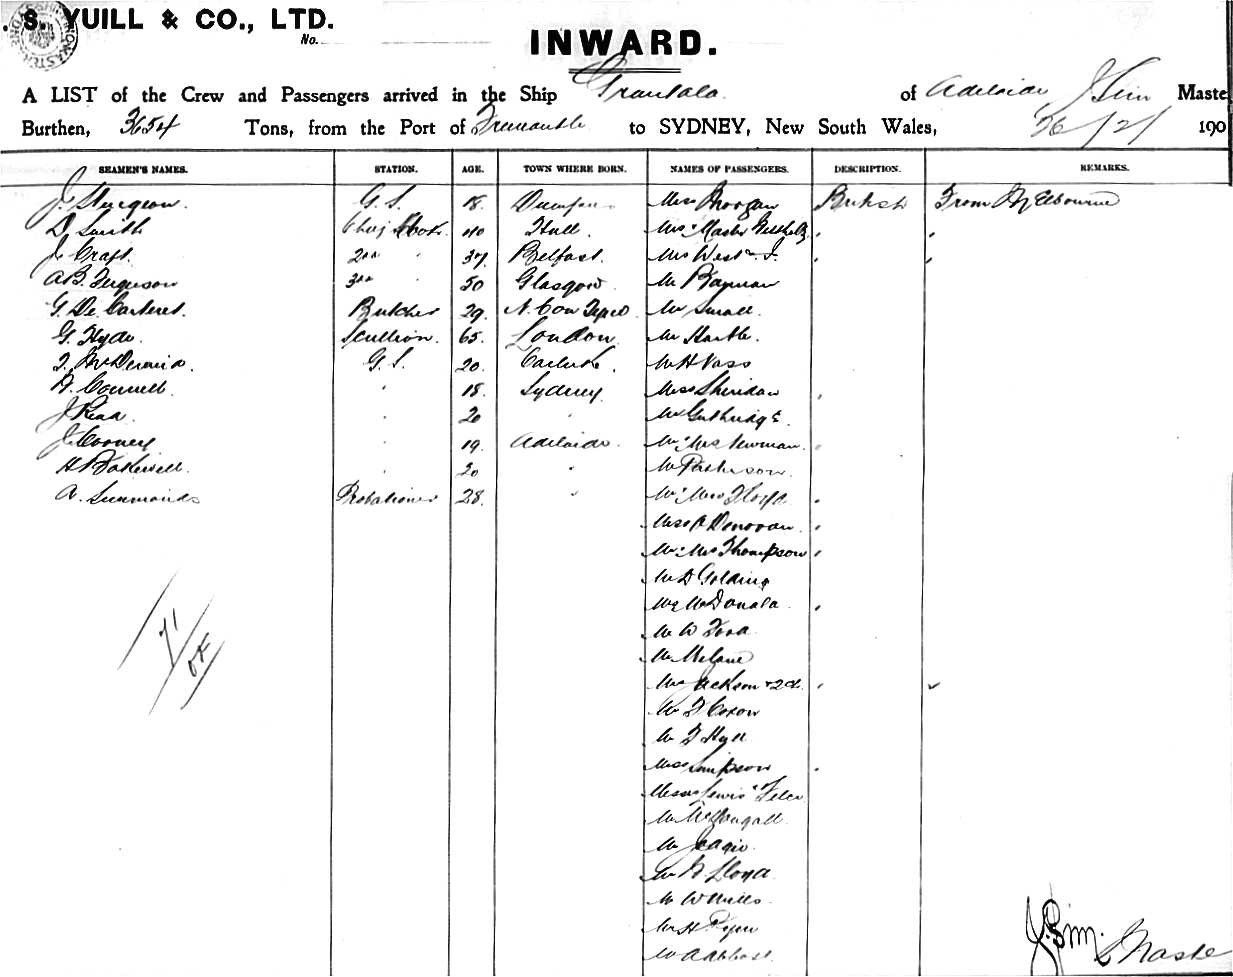 . S. YUILL & CO., LTD.
No.
INWARD.
A LIST of the Crew and Passengers arrived in the Ship Grantala of Adelaide J. Sim Maste
Burthen, 3654 Tons, from the Port of Fremantle to SYDNEY, New South Wales, 26/2/ 190
SEAMEN'S NAMES. STATION. AGE. TOWN WHERE BORN. NAMES OF PASSENGERS. DESCRIPTION. REMARKS.
J. Sturgeon G.S. 18. Dumfries Miss Morgan British From Melbourne
D. Smith Chief Cook 40 Hull Mrs & Master
J. Craft 2nd " 37 Belfast. Mrs West & I.
A.B. Ferguson 3rd " 50 Glasgow Mr
G. De Carteret. Butcher 29. N. Mr Small.
G. Hyde Scullion. 65. London. Mr Hartle
J. McDermid. G.S. 20. Mr H Vass
A. Connell. " 18. Sydney. Miss Sheridan
J. Read " 20 " Mr Guthridge
J. Cooney " 19. Adelaide. Mr & Mrs Newman.
H Bakewell. " 20 " Mr Parkinson
A. Simmonds Probationer 28. " Mr & Mrs Floyd
Miss A Donovan.
Mr & Mrs Thompson
Mr D Golding
Mr McDonald
Mr W Ford
Mr
Mrs Jackson & 2 ch.
Mr F Coxon
Mr F Hyde
Miss Simpson
Messrs Lewis &
Mr McDougall.
Mr
Mr N. Lloyd
Mr W Mills
Mr H
Mr A Abbott.
71
OK
J. Sim.
Maste